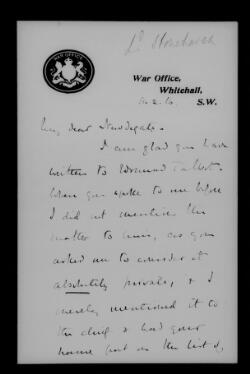 WAR OFFICE
Ld Stonehaven
War Office,
Whitehall,
S.W.
My dear Newdegate.
I am glad you have
written to Edmund Talbot.
When you spoke to me before
I did not mention the
matter to him, as you
asked me to consider it
absolutely private, & I
merely mentioned it to
the & had your
name put on the list of